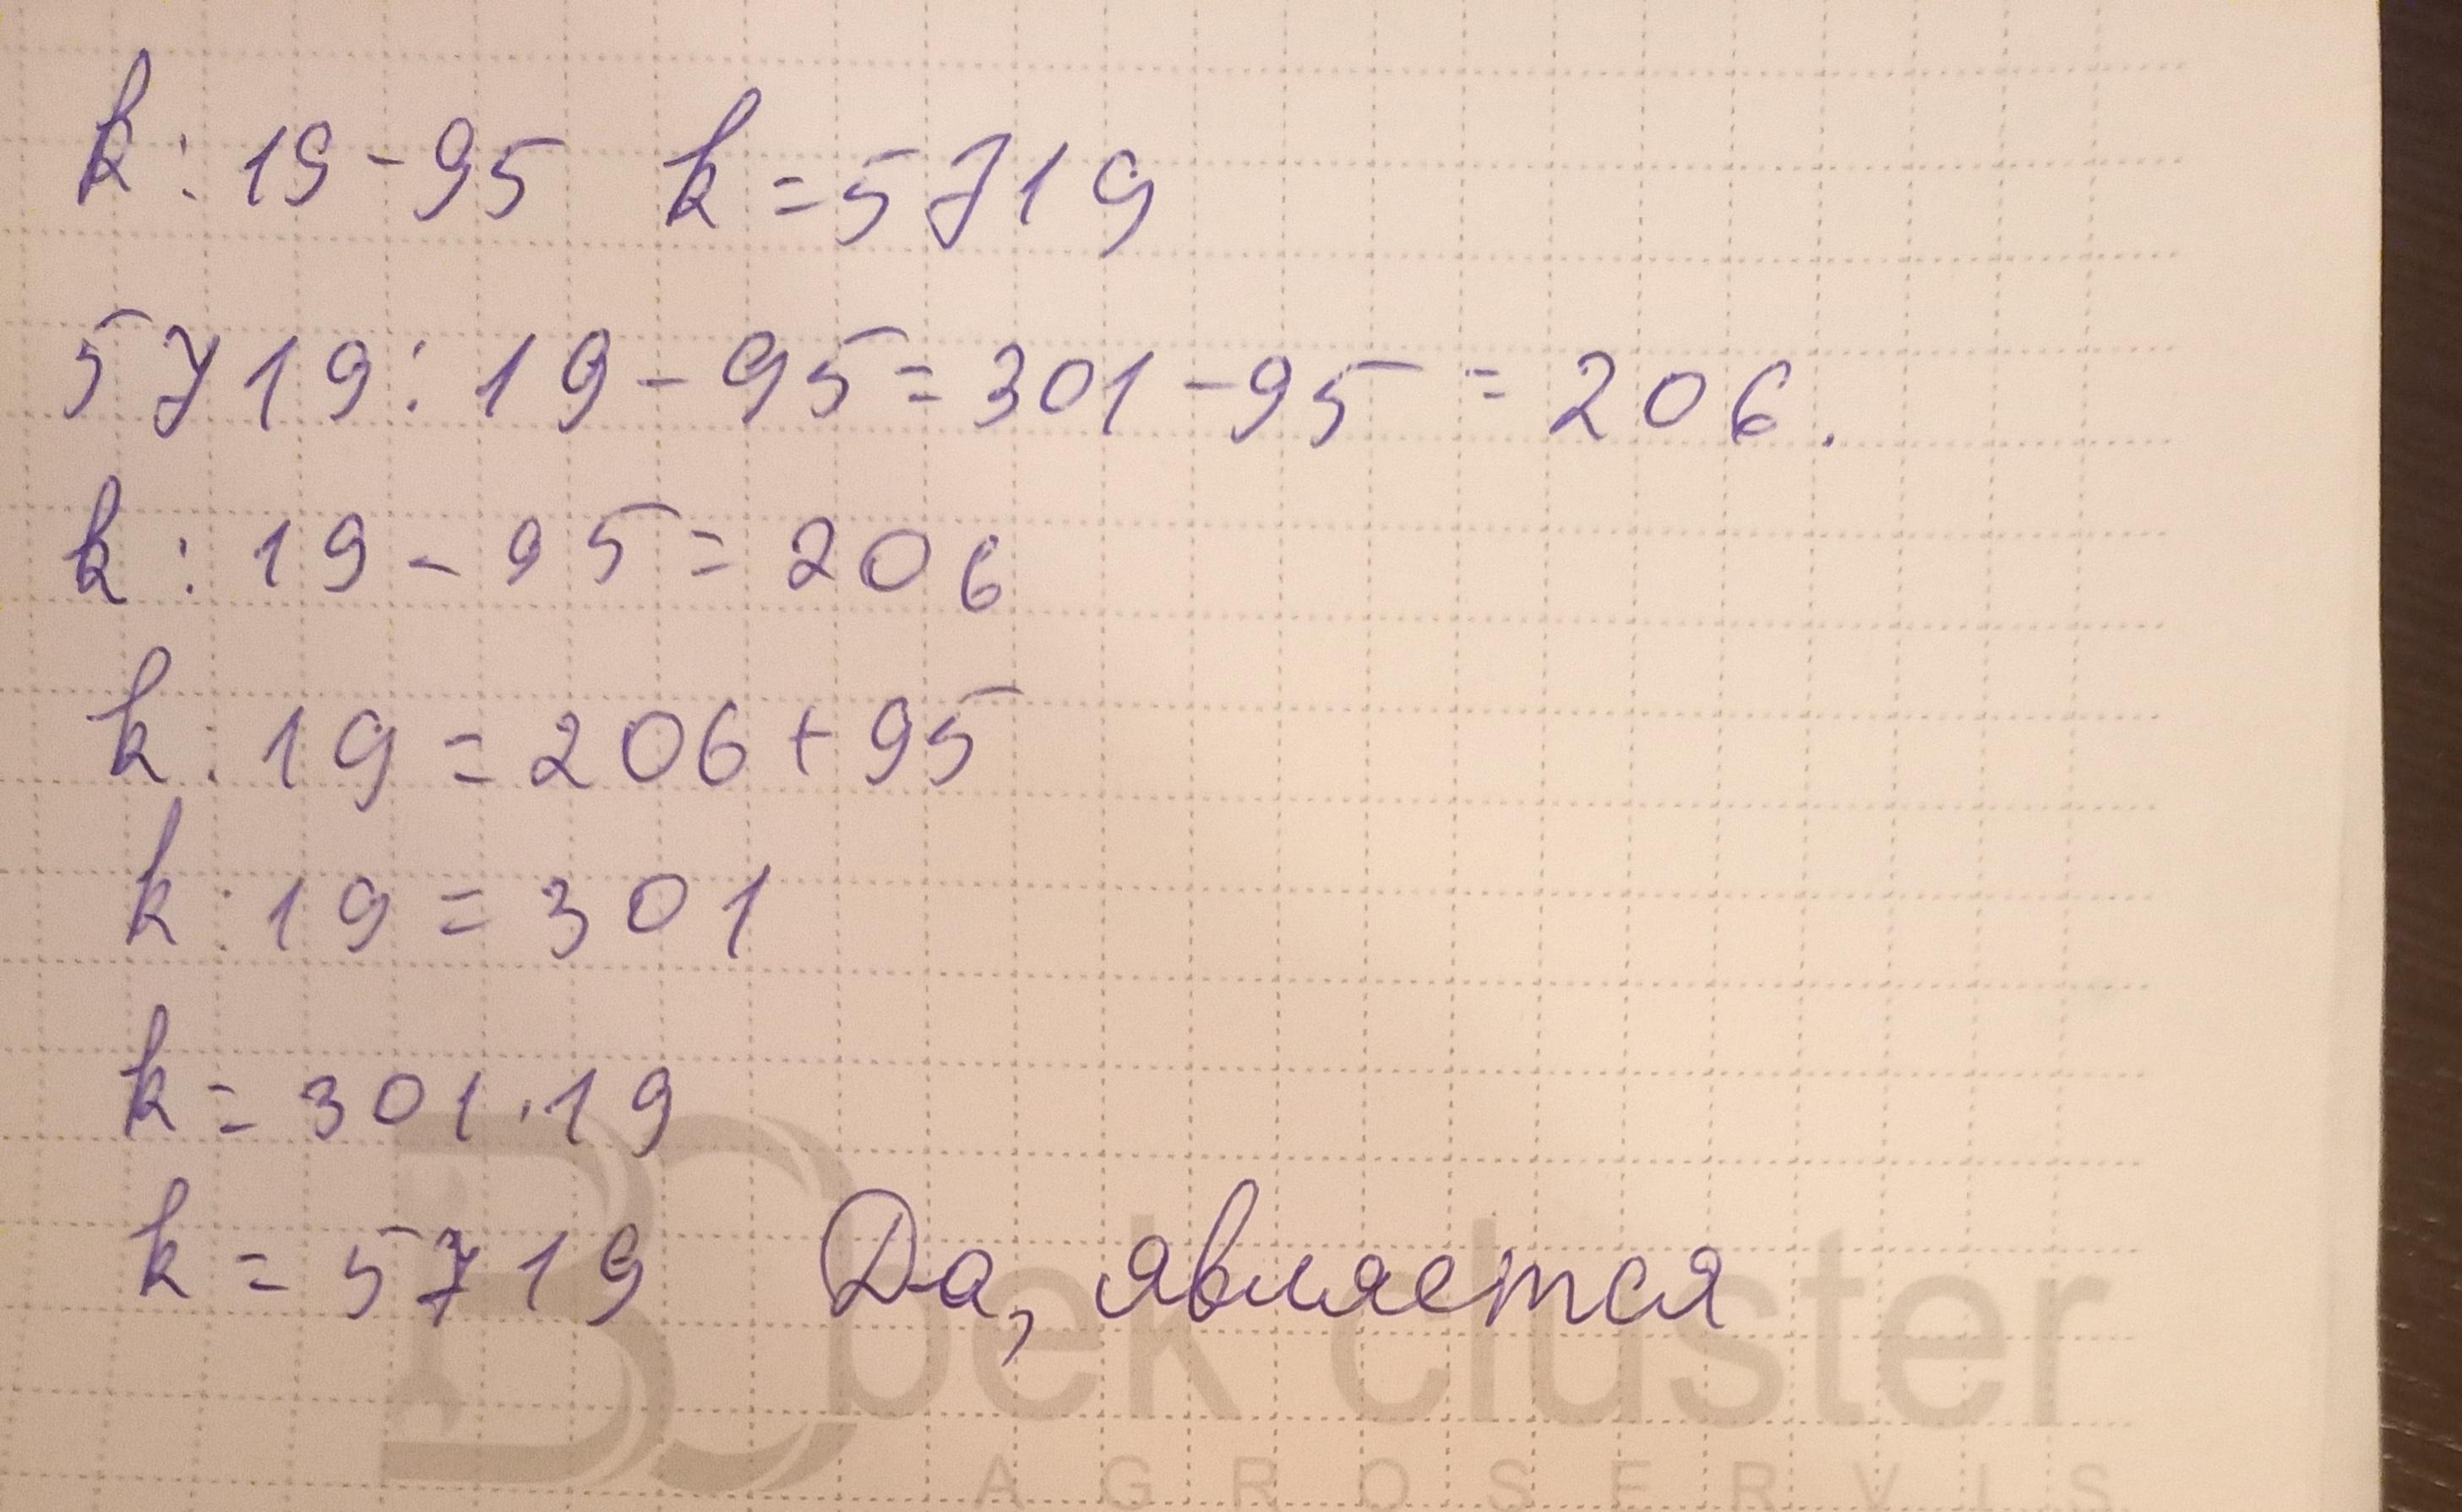 k : 19 - 95 k = 5719
5719 : 19 - 95 = 301 - 95 = 206.
k : 19 - 95 = 206
k : 19 = 206 + 95
k : 19 = 301
k = 301 · 19
k = 5719 Да, является
bek cluster
AGROSERVIS